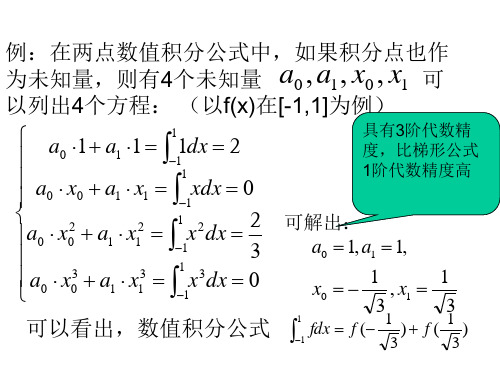 例：在两点数值积分公式中，如果积分点也作
为未知量，则有4个未知量 a₀, a₁, x₀, x₁ 可
以列出4个方程： （以f(x)在[-1,1]为例）
a₀ · 1 + a₁ · 1 = ∫₋₁¹ 1dx = 2
a₀ · x₀ + a₁ · x₁ = ∫₋₁¹ xdx = 0
a₀ · x₀² + a₁ · x₁² = ∫₋₁¹ x²dx = 2/3
a₀ · x₀³ + a₁ · x₁³ = ∫₋₁¹ x³dx = 0
具有3阶代数精
度，比梯形公式
1阶代数精度高
可解出：
a₀ = 1, a₁ = 1,
x₀ = −1/√3, x₁ = 1/√3
可以看出，数值积分公式 ∫₋₁¹ fdx = f(−1/√3) + f(1/√3)